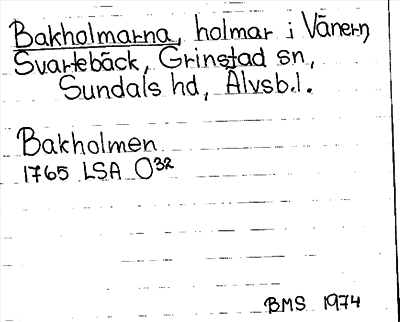 Bakholmarna, holmar i Vänern,
Svartebäck, Grinstad sn,
Sundals hd, Älvsb.l.
Bakholmen
1765 LSA O³²
BMS 1974